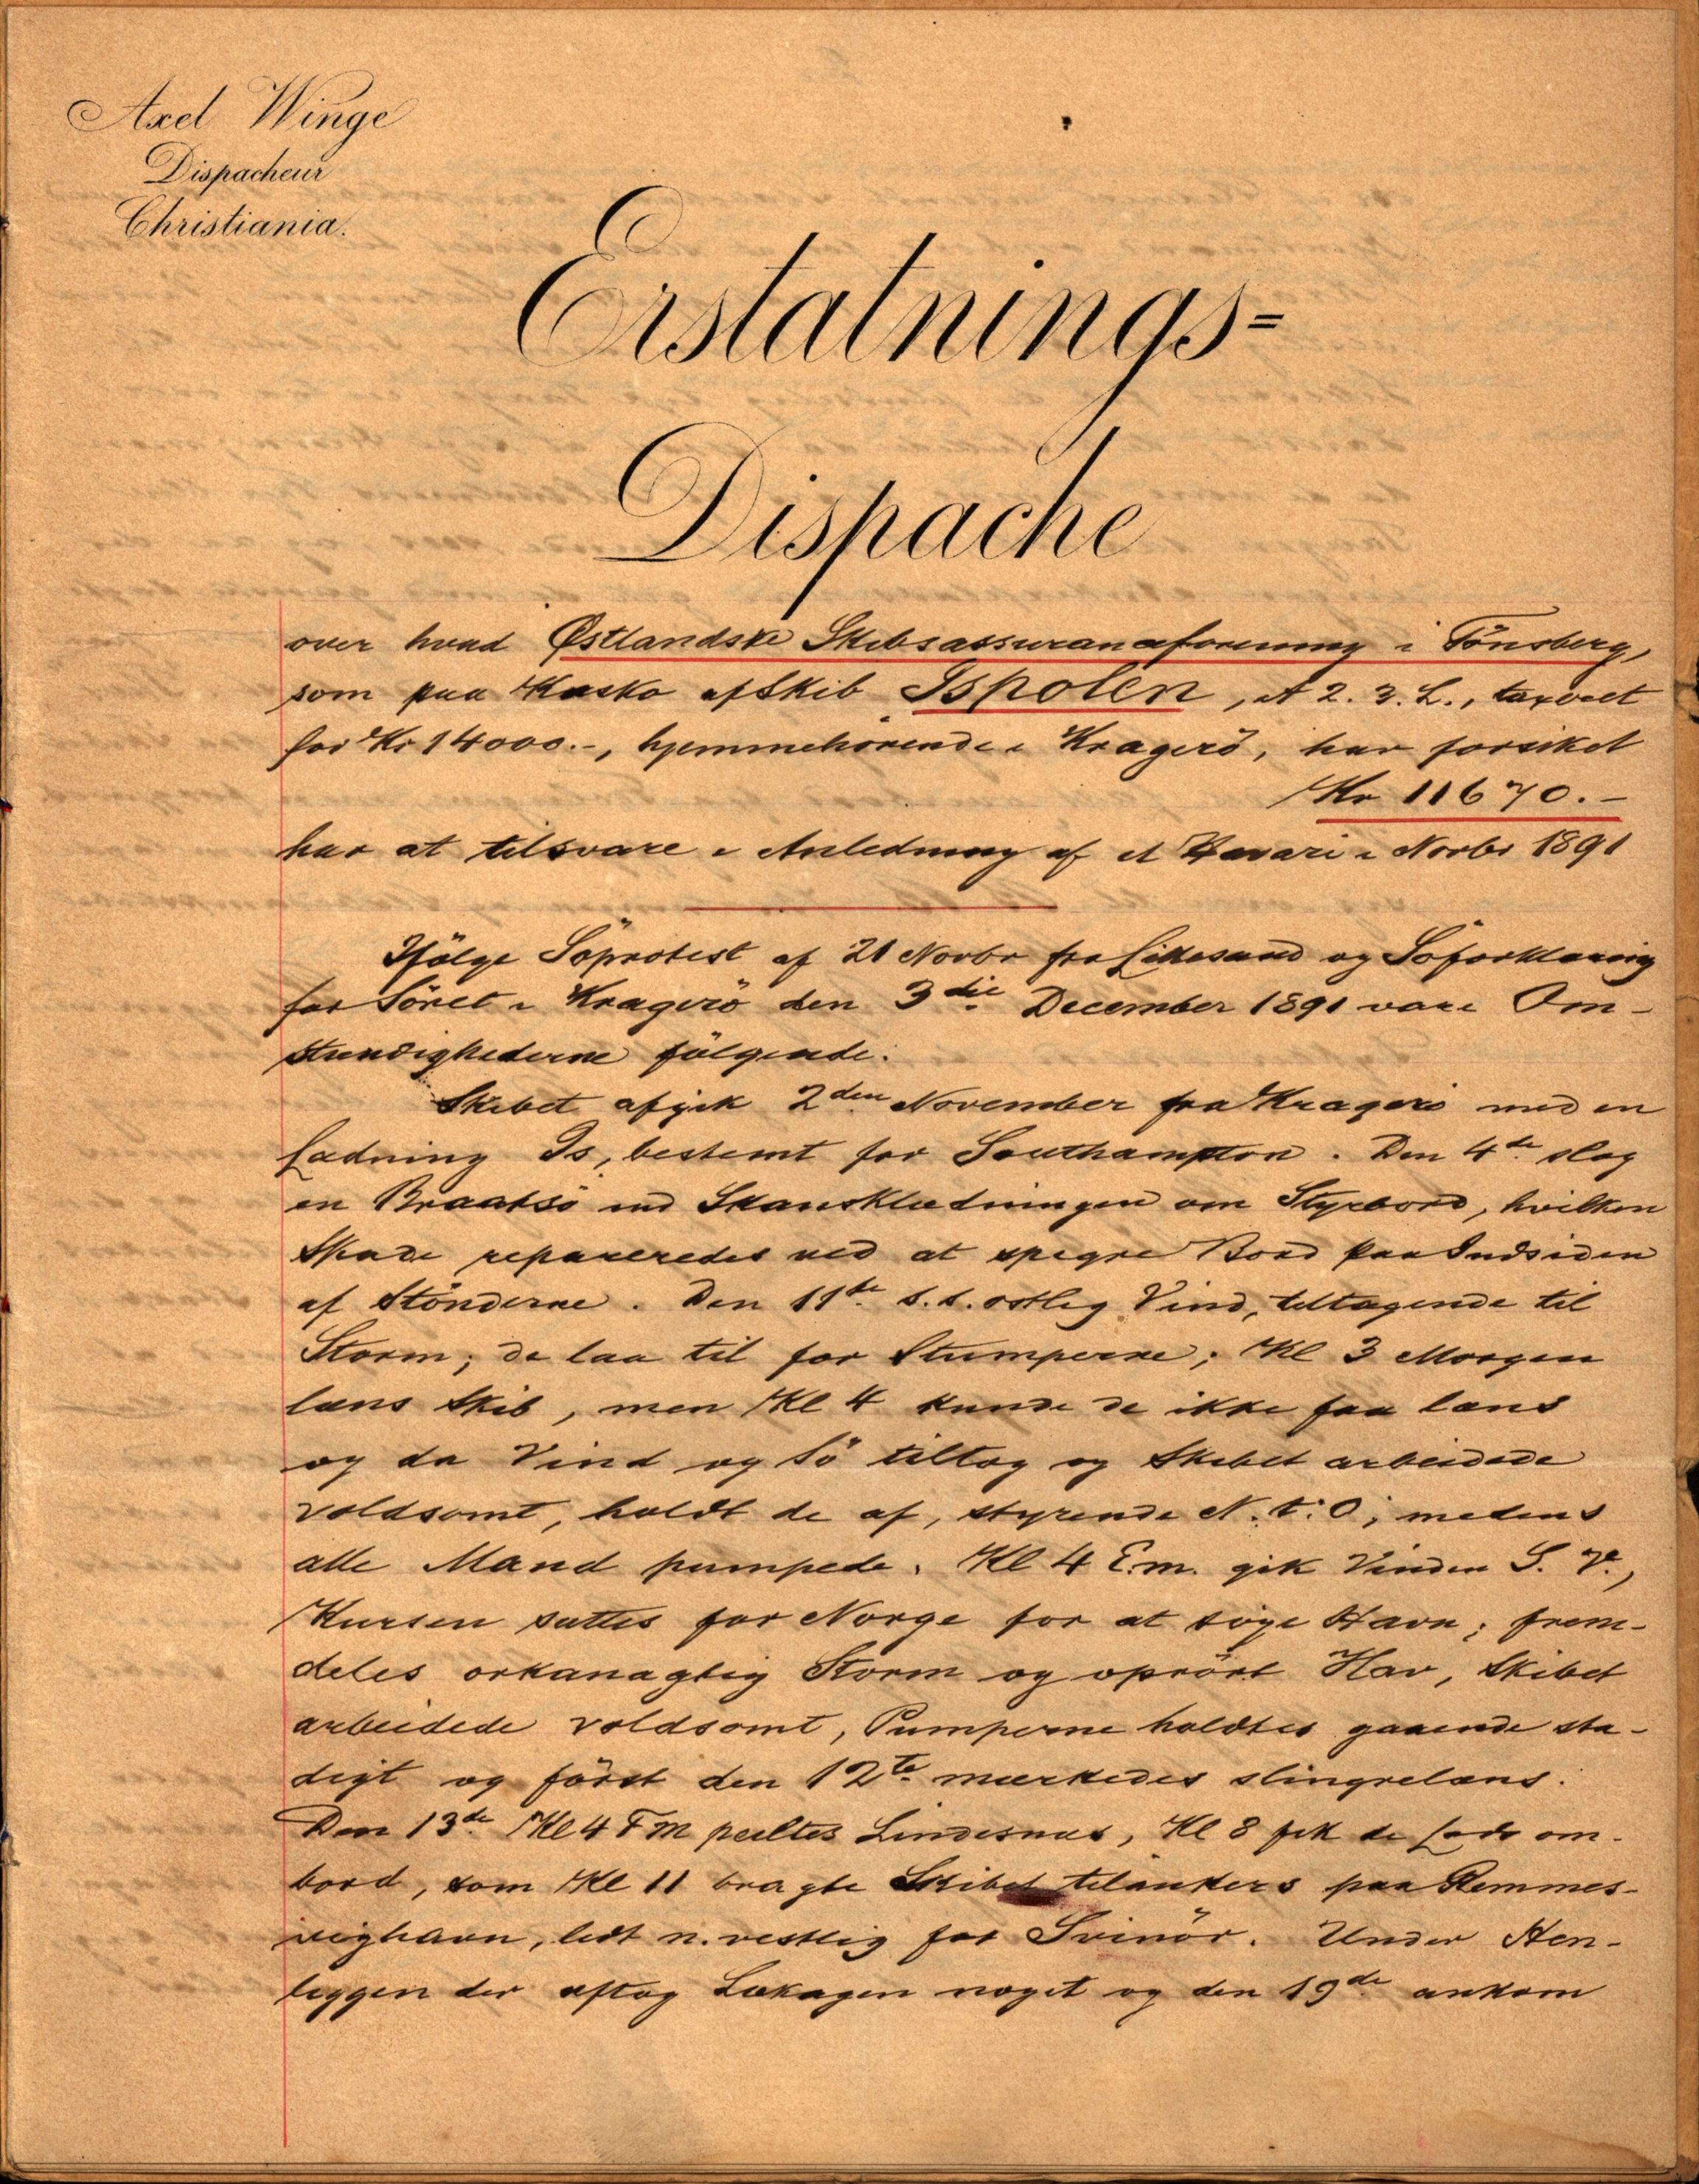 Axel Winge
Dispacheur
Christiania.
Erstatnings=
Dispache
over hvad Østlandske Skibsassuranceforening i Tönsberg,
som paa Kasko af Skib Ispolen, A 2. 3. L., taxeret
for Kr 14000.-, hjemmehörende i Kragerö, har forsikret
Kr 11670.-
har at tilsvare i Anledning af et Havari i Novbr 1891
Ifölge Söprotest af 21 Novbr fra Lillesand og Söforklaring
for Söret i Kragerö den 3die December 1891 vare Om-
stændighederne fölgende:
Skibet afgik 2den November fra Kragerö med en
Ladning Is, bestemt for Southampton. Den 4de slog
en Braatsö ind Skandsklædningen om Styrbord, hvilken
Skade repareredes ved at spigre Bord paa Indsiden
af Stönderne. Den 11te s.s. ostlig Vind, tiltagende til
Storm; de laa til for Stumperne; Kl 3 Morgen
læns Skib, men Kl 4 kunde de ikke faa læns
og da Vind og Sö tiltog og Skibet arbeidede
voldsomt, holdt de af, styrende N.t.O; medens
alle Mand pumpede. Kl 4 E.m. gik Vinden S. V.,
Kursen sattes for Norge for at söge Havn; frem-
deles orkanagtig Storm og oprört Hav, Skibet
arbeidede voldsomt, Pumperne holdtes gaaende sta-
digt og först den 12te mærkedes slingrelæns.
Den 13de Kl 4 FM peiltes Lindesnæs, Kl 8 fik de Lods om-
bord, som Kl 11 bragte Skibet tilankers paa Remmes-
vighavn, lidt n. vestlig for Svinör. Under Hen-
liggen der aftog Lækagen noget og den 19de ankom